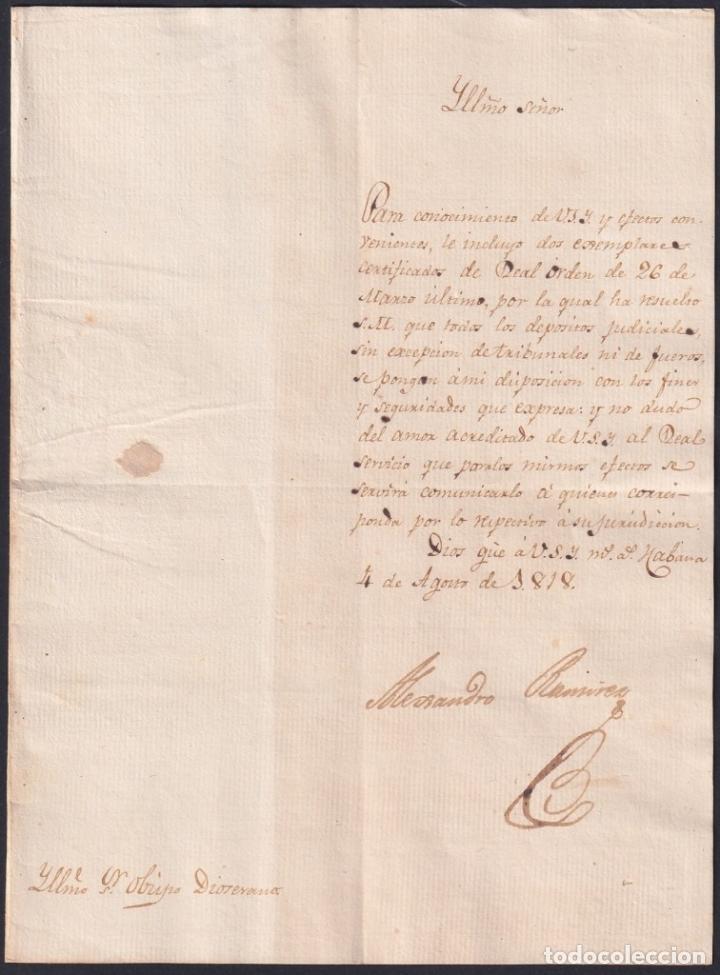 Yllmõ Señor
Para conocimiento de V.S.Y. y efectos con-
venientes, le incluyo dos exemplares
certificados de Real orden de 26 de
Marzo ultimo, por la qual ha resuelto
S.M. que todos los depositos judiciales,
sin excepcion de tribunales ni de fueros,
se pongan à mi disposicion con los fines
y seguridades que expresa: y no dudo
del amor acreditado de V.S.Y. al Real
servicio que para los mismos efectos se
servirá comunicarlo á quienes corres-
ponda por lo respectivo à su jurisdiccion.
Dios gũe à V.S.Y. ms. as. Habana
4 de Agosto de 1818.
Alexandro Ramirez
Yllmo Sr. Obispo Diocesano
todocoleccion
todocoleccion.net